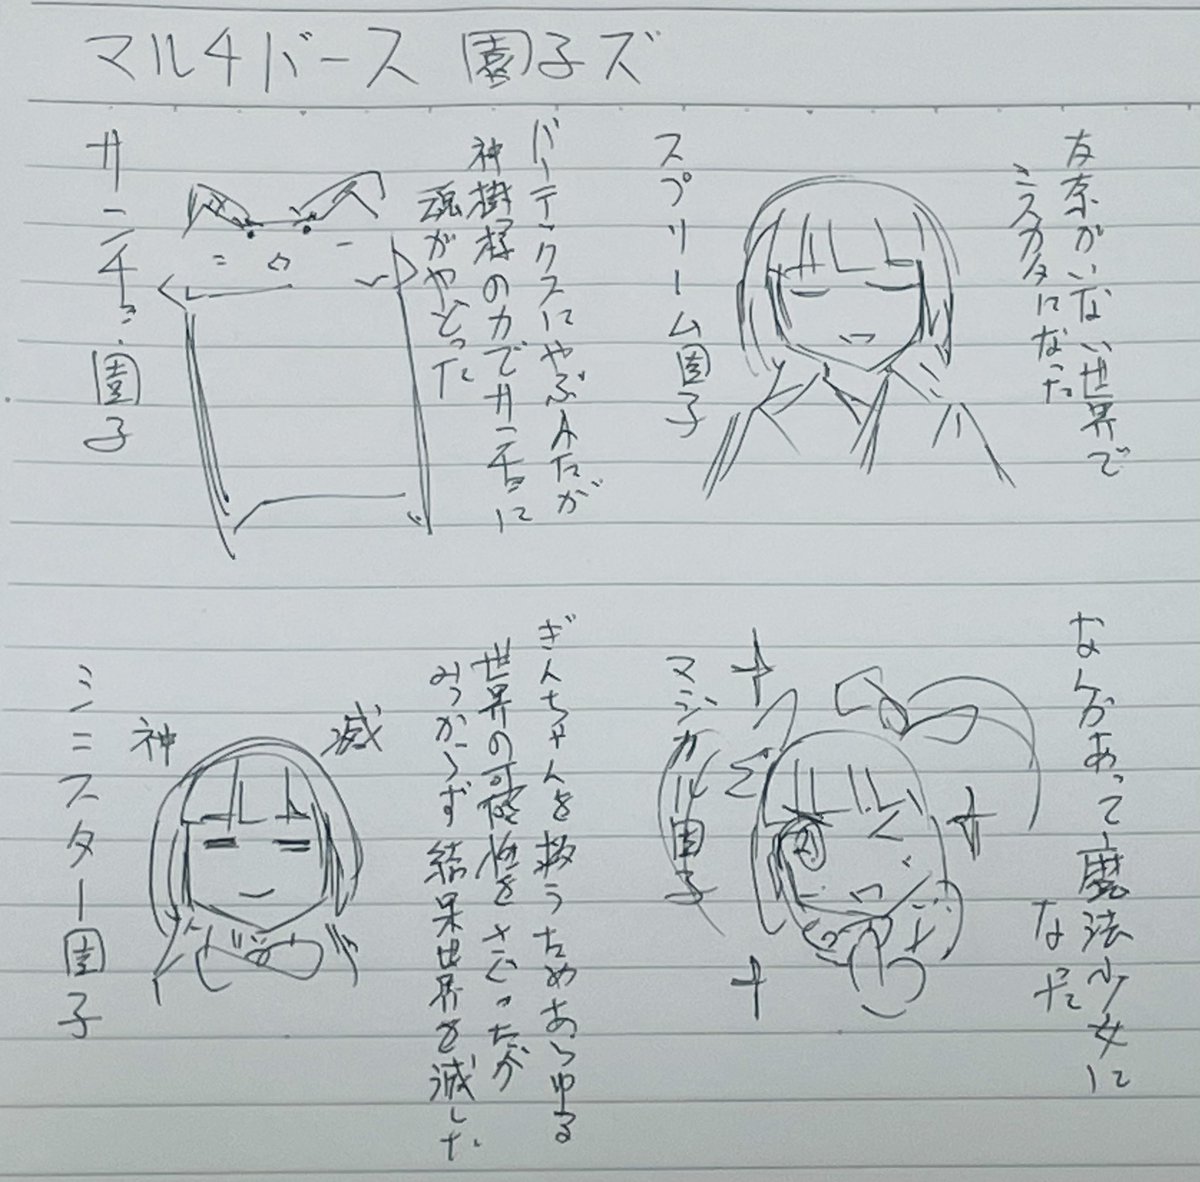 マルチバース 園子ズ
友奈がいない世界で
ミスカタになった
スプリーム園子
バーテックスにやぶれたが
神樹様の力でサンチョに
魂がやどった
サンチョ園子
なんかあって魔法少女に
なった
マジカル園子
ぎんちゃんを救うためあらゆる
世界の可能性をさぐったが
みつからず結果世界を滅した
滅
神
シニスター園子